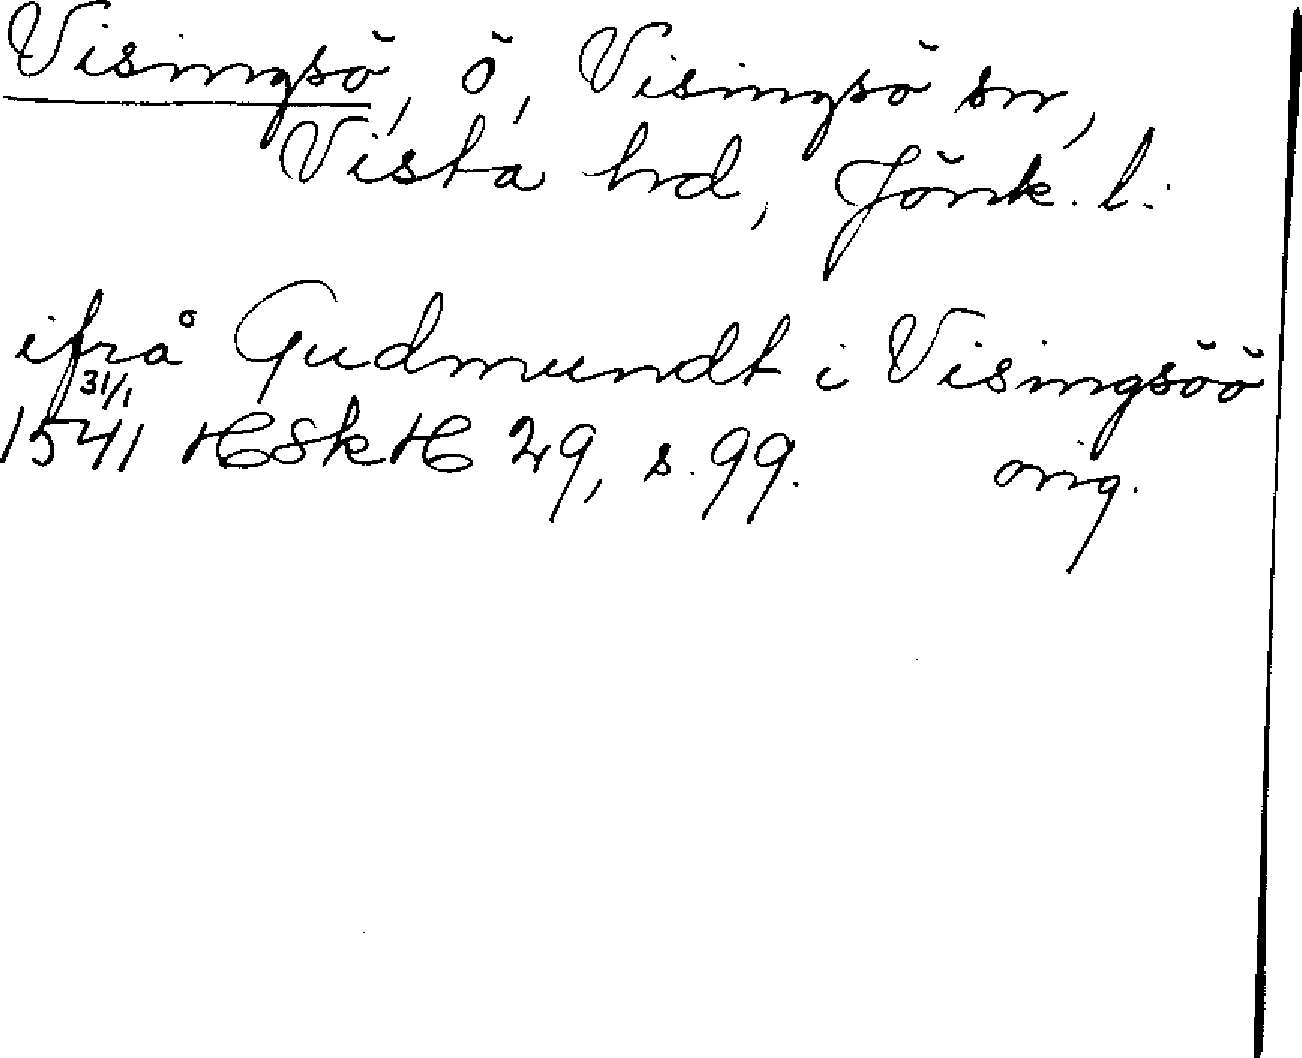 Visingsö, ö, Visingsö sn,
Vista hd, Jönk. l.
ifrå Gudmundt i Visingsöö
31/1
1541 HSkH 29, s. 99. orig.